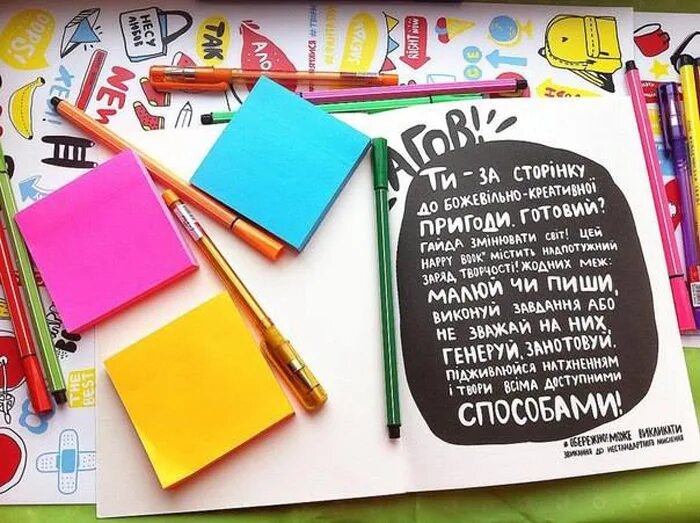 OOPS!
НЕСУ
ЛЮБОВ
ТАК
RIGHT
NOW
NEW
THE
BEST
АГОВ!
ТИ – ЗА СТОРІНКУ
ДО БОЖЕВІЛЬНО-КРЕАТИВНОЇ
ПРИГОДИ. ГОТОВИЙ?
ГАЙДА ЗМІНЮВАТИ СВІТ! ЦЕЙ
HAPPY BOOK" МІСТИТЬ НАДПОТУЖНИЙ
ЗАРЯД ТВОРЧОСТІ! ЖОДНИХ МЕЖ:
МАЛЮЙ ЧИ ПИШИ,
ВИКОНУЙ ЗАВДАННЯ АБО
НЕ ЗВАЖАЙ НА НИХ,
ГЕНЕРУЙ, ЗАНОТОВУЙ,
ПІДЖИВЛЮЙСЯ НАТХНЕННЯМ
І ТВОРИ ВСІМА ДОСТУПНИМИ
СПОСОБАМИ!
* ОБЕРЕЖНО! МОЖЕ ВИКЛИКАТИ
ЗВИКАННЯ ДО НЕСТАНДАРТНОГО МИСЛЕННЯ